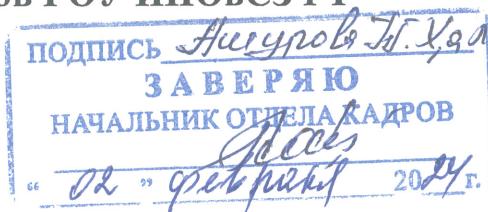 ПОДПИСЬ Ашурова Т.Х.
ЗАВЕРЯЮ
НАЧАЛЬНИК ОТДЕЛА КАДРОВ
“ 02 ” февраля 2024 г.